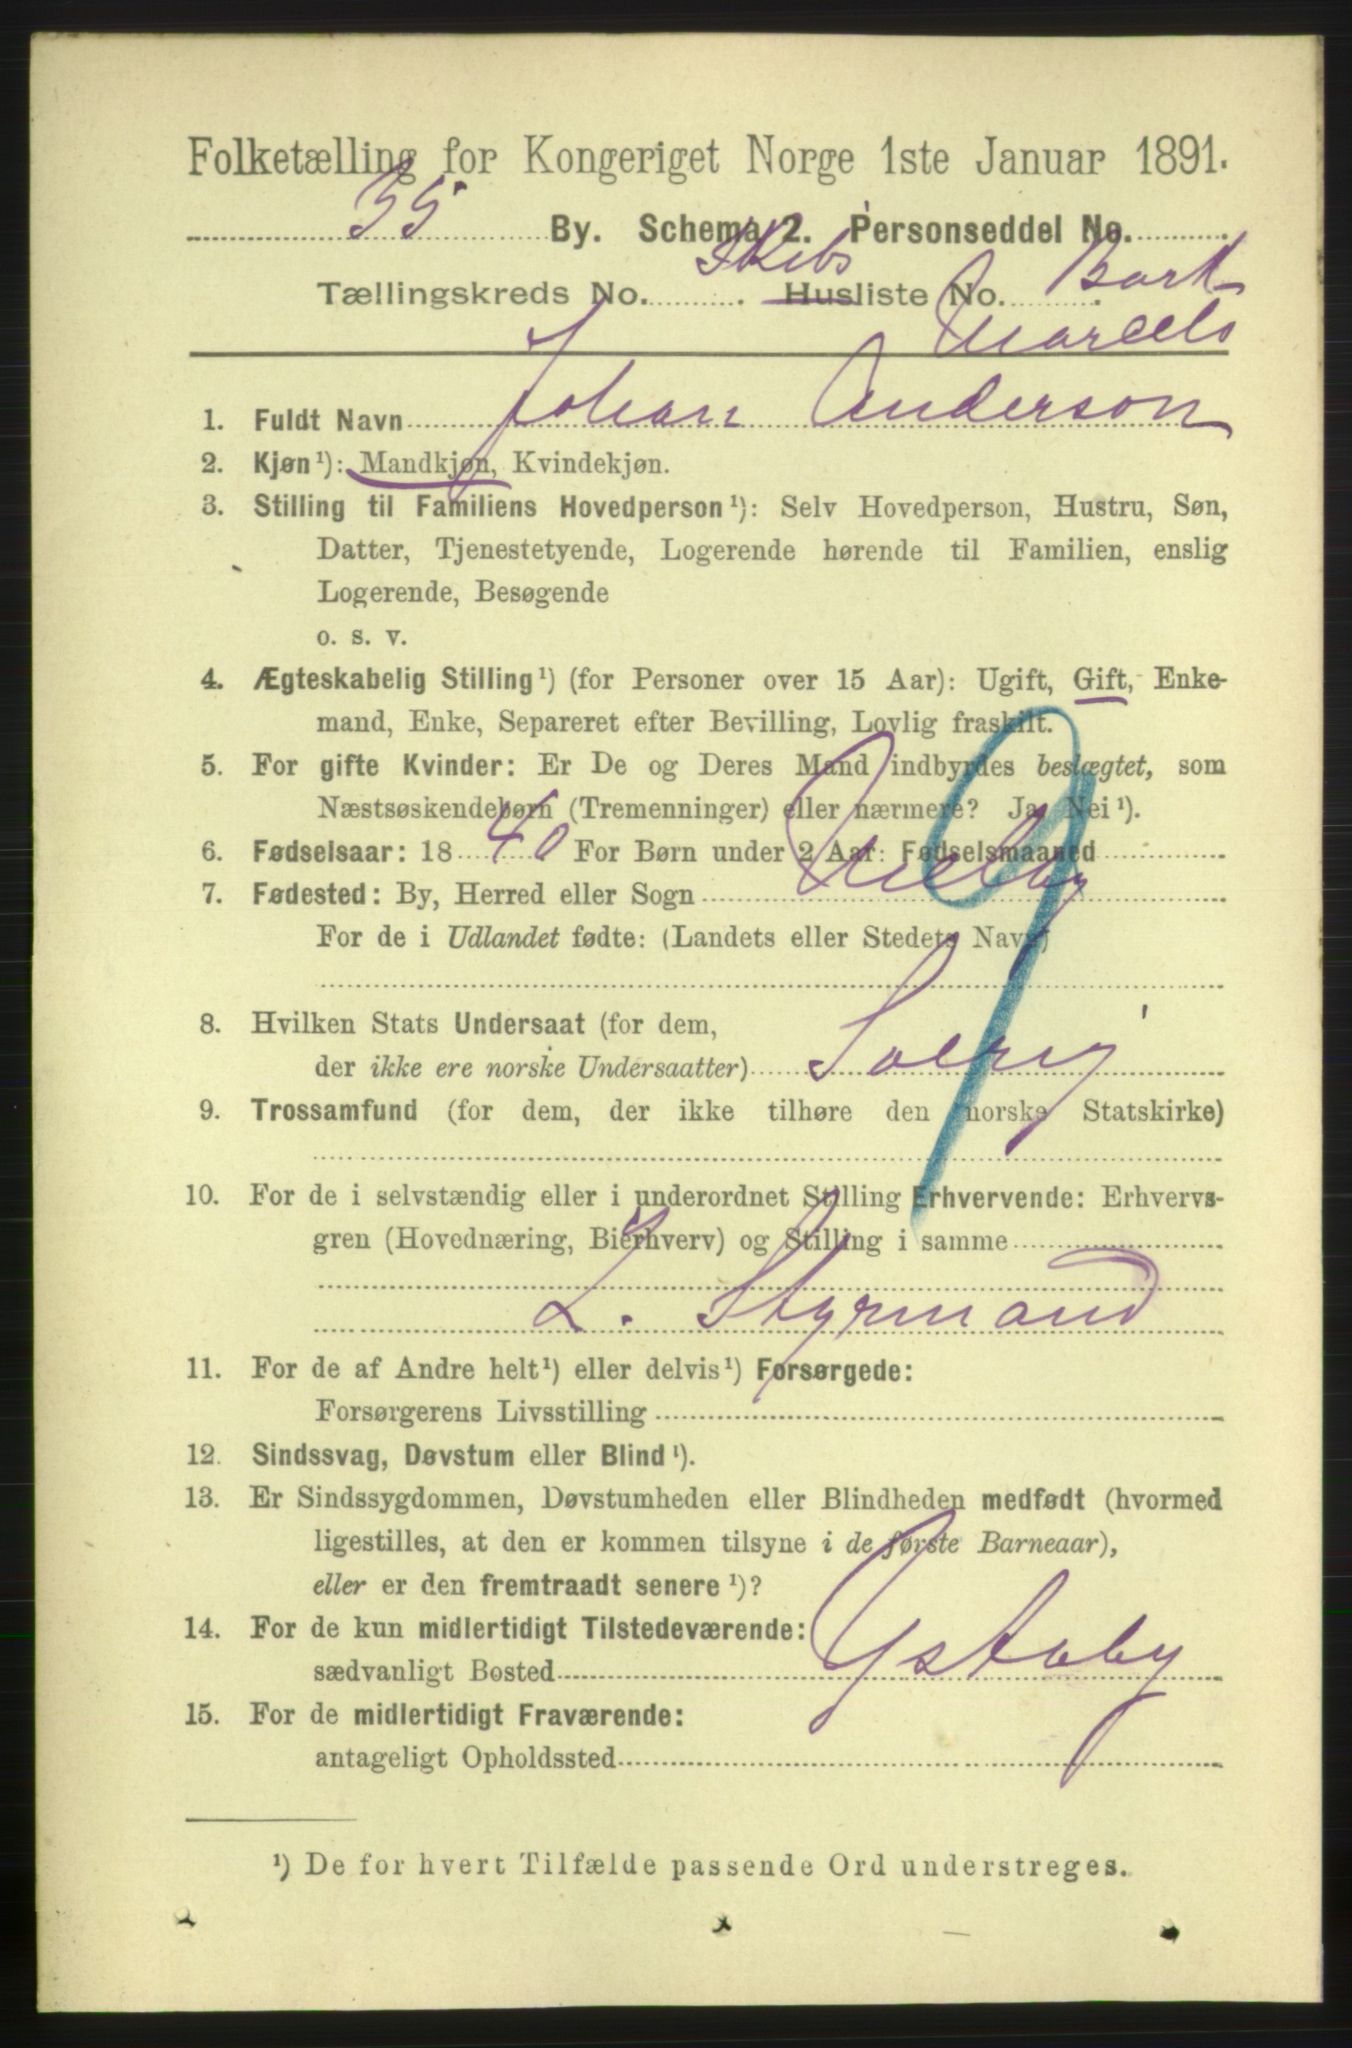 Folketælling for Kongeriget Norge 1ste Januar 1891.
35 By. Schema 2. Personseddel No.
Skibs
Tællingskreds No. . Husliste No. Bark
Marcelo
1. Fuldt Navn Johan Anderson
2. Kjøn¹): Mandkjøn, Kvindekjøn.
3. Stilling til Familiens Hovedperson¹): Selv Hovedperson, Hustru, Søn,
Datter, Tjenestetyende, Logerende hørende til Familien, enslig
Logerende, Besøgende
o. s. v.
4. Ægteskabelig Stilling¹) (for Personer over 15 Aar): Ugift, Gift, Enke-
mand, Enke, Separeret efter Bevilling, Lovlig fraskilt.
5. For gifte Kvinder: Er De og Deres Mand indbyrdes beslægtet, som
Næstsøskendebørn (Tremenninger) eller nærmere? Ja, Nei¹).
6. Fødselsaar: 1840 For Børn under 2 Aar: Fødselsmaaned
7. Fødested: By, Herred eller Sogn
For de i Udlandet fødte: (Landets eller Stedets Navn)
9
8. Hvilken Stats Undersaat (for dem,
der ikke ere norske Undersaatter)
9. Trossamfund (for dem, der ikke tilhøre den norske Statskirke)
10. For de i selvstændig eller i underordnet Stilling Erhvervende: Erhvervs-
gren (Hovednæring, Bierhverv) og Stilling i samme
2. Styrmand
11. For de af Andre helt¹) eller delvis¹) Forsørgede:
Forsørgerens Livsstilling
12. Sindssvag, Døvstum eller Blind¹).
13. Er Sindssygdommen, Døvstumheden eller Blindheden medfødt (hvormed
ligestilles, at den er kommen tilsyne i de første Barneaar),
eller er den fremtraadt senere¹)?
14. For de kun midlertidigt Tilstedeværende:
sædvanligt Bosted Ystaby
15. For de midlertidigt Fraværende:
antageligt Opholdssted
¹) De for hvert Tilfælde passende Ord understreges.